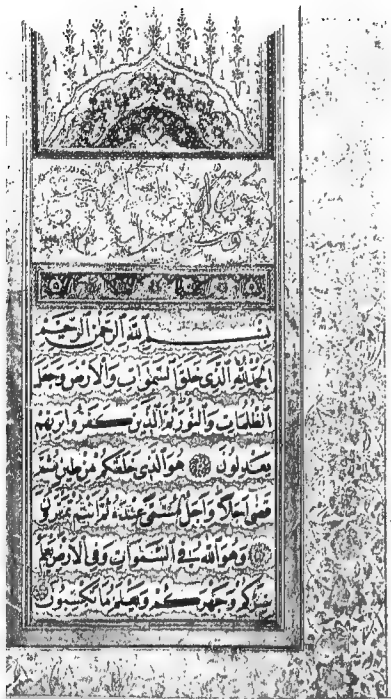 بسم الله الرحمن الرحيم
الحمد لله الذى خلق السموات والارض وجعل
الظلمات والنور ثم الذين كفروا بربهم
يعدلون هو الذى خلقكم من طين ثم
قضى اجلا واجل مسمى عنده ثم انتم تمترون
وهو الله فى السموات وفى الارض يعلم
سركم وجهركم ويعلم ما تكسبون